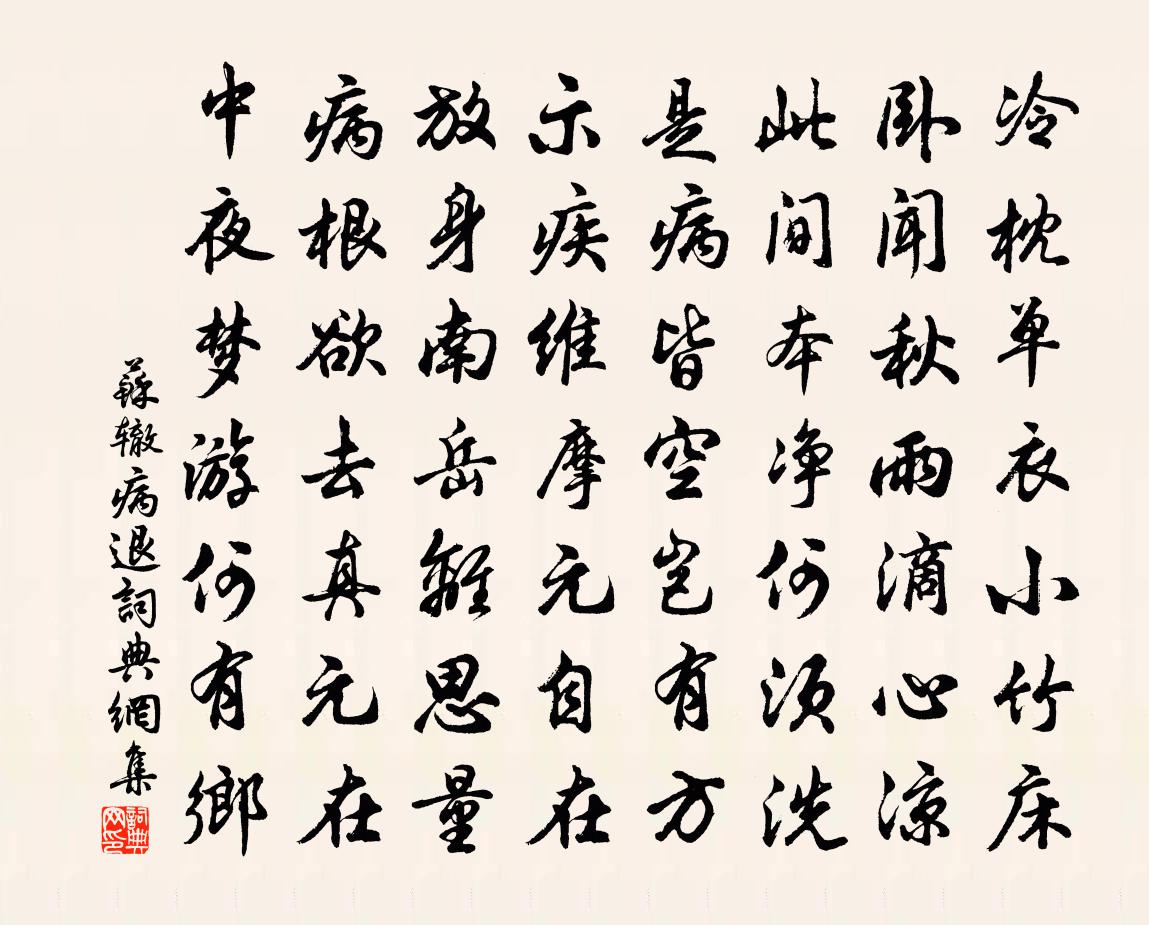 冷枕单衣小竹床
卧闻秋雨滴心凉
此间本净何须洗
是病皆空岂有方
示疾维摩元自在
放身南岳离思量
病根欲去真元在
中夜梦游何有乡
蘇辙病退詞典網集
詞典网印